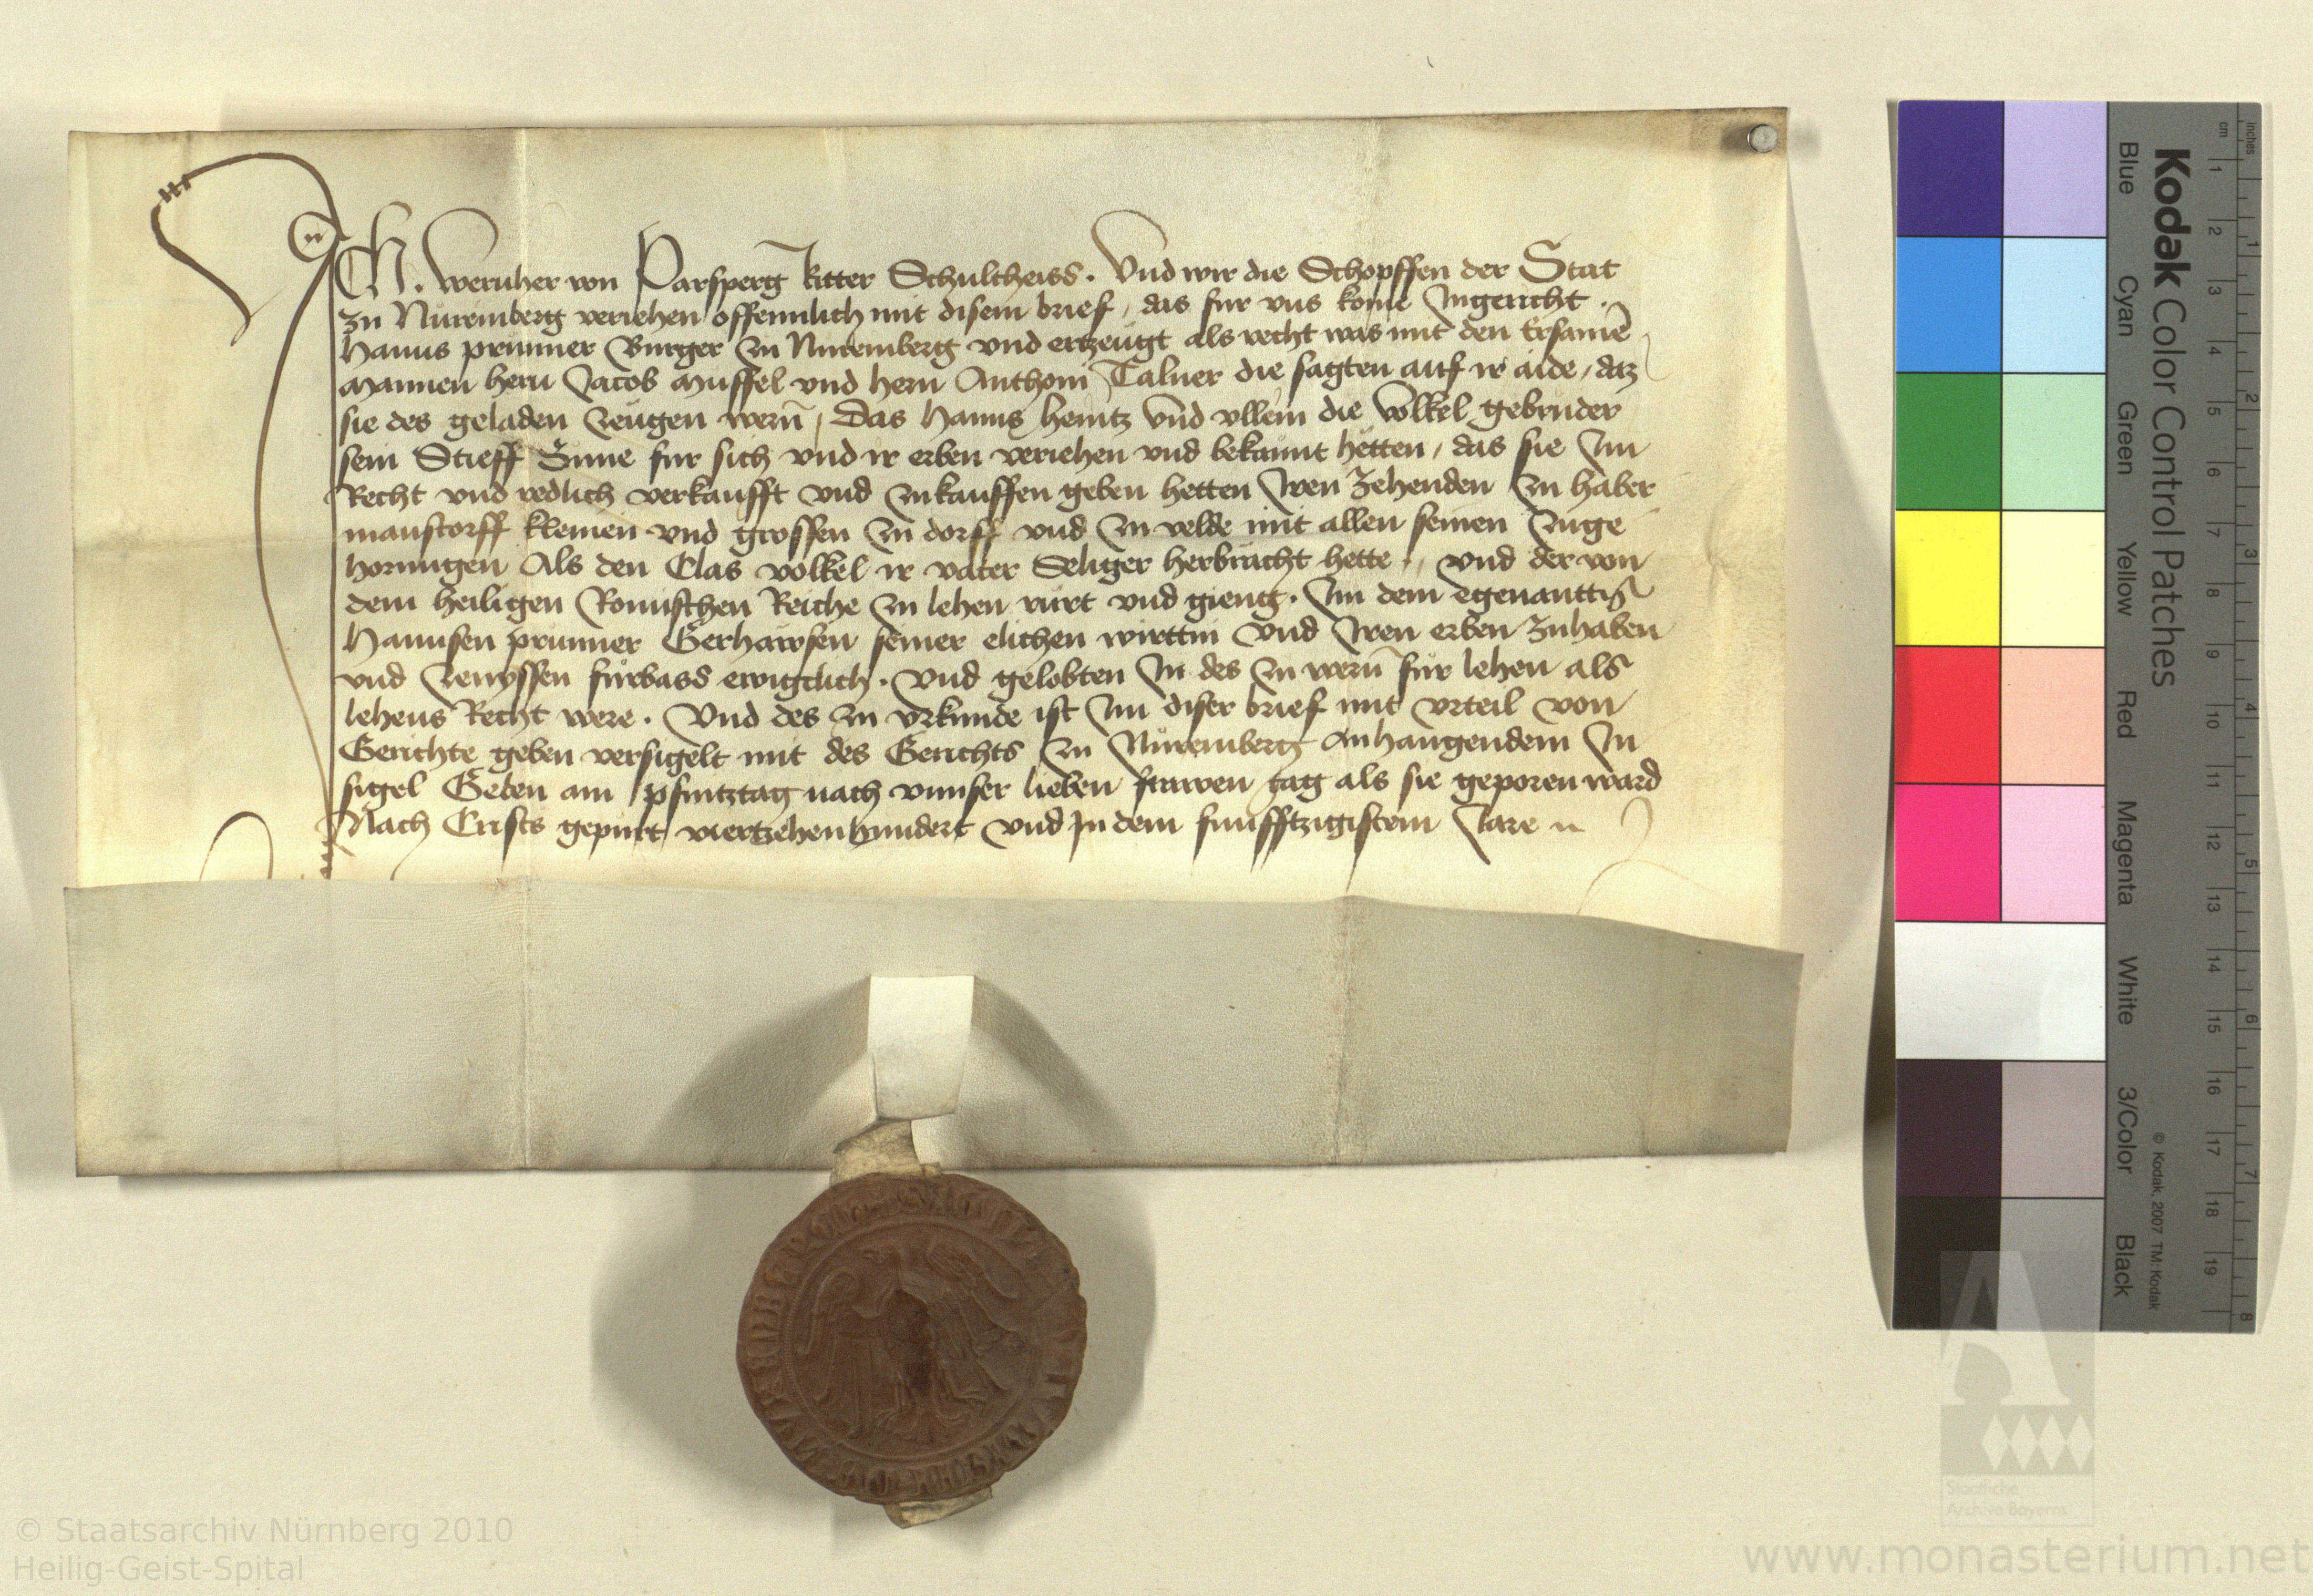 ICH. Wernher von Parsperg Ritter Schultheiss. Und wir die Schopffen der Stat
zu Nüremberg veriehen offennlich mit disem brief, das für vns kome Ingericht.
Hanns prunner Burger zu Nüremberg vnd ertzeugt als recht was mit den Ersamē
mannen hern Jacob Muffel vnd hern Anthoni Talner die sagten auf ir aide, daz
sie des geladen zeugen wern̄, Das Hanns heintz vnd vllein die volkel gebruder
sein Stieff Süne für sich vnd ir erben veriehen vnd bekannt hetten, das sie Im
Recht vnd redlich verkaufft vnd zukauffen geben hetten Iren Zehenden zu haber
manstorff kleinen vnd grossen zu dorff vnd zu velde mit allen seinen zuge
horungen Als den Clas volkel ir vater Seliger herbracht hette, vnd der von
dem heiligen Romischen Reiche zu lehen rürt vnd gieng. Im dem egenantten
Hannsen prunner Gerhawsen seiner elichen wirttin Vnd Iren erben zuhaben
vnd zenyssen fürbass ewigclich. Vnd gelobten In des zu wern̄ für lehen als
lehens Recht were. Vnd des zu vrkunde ist Im diser brief mit vrteil von
Gerichte geben versigelt mit des Gerichts zu Nüremberg anhangendem In
sigel Geben am pfintztag nach vnnser lieben frawen tag als sie geporen ward
Nach Crists gepurt viertzehenhundert vnd In dem funfftzigistem Jare
Kodak Color Control Patches
Blue Cyan Green Yellow Red Magenta White 3/Color Black
© Kodak, 2007 TM: Kodak
cm 1 2 3 4 5 6 7 8 9 10 11 12 13 14 15 16 17 18 19
inches 1 2 3 4 5 6 7 8
Staatliche
Archive Bayerns
© Staatsarchiv Nürnberg 2010
Heilig-Geist-Spital
www.monasterium.net